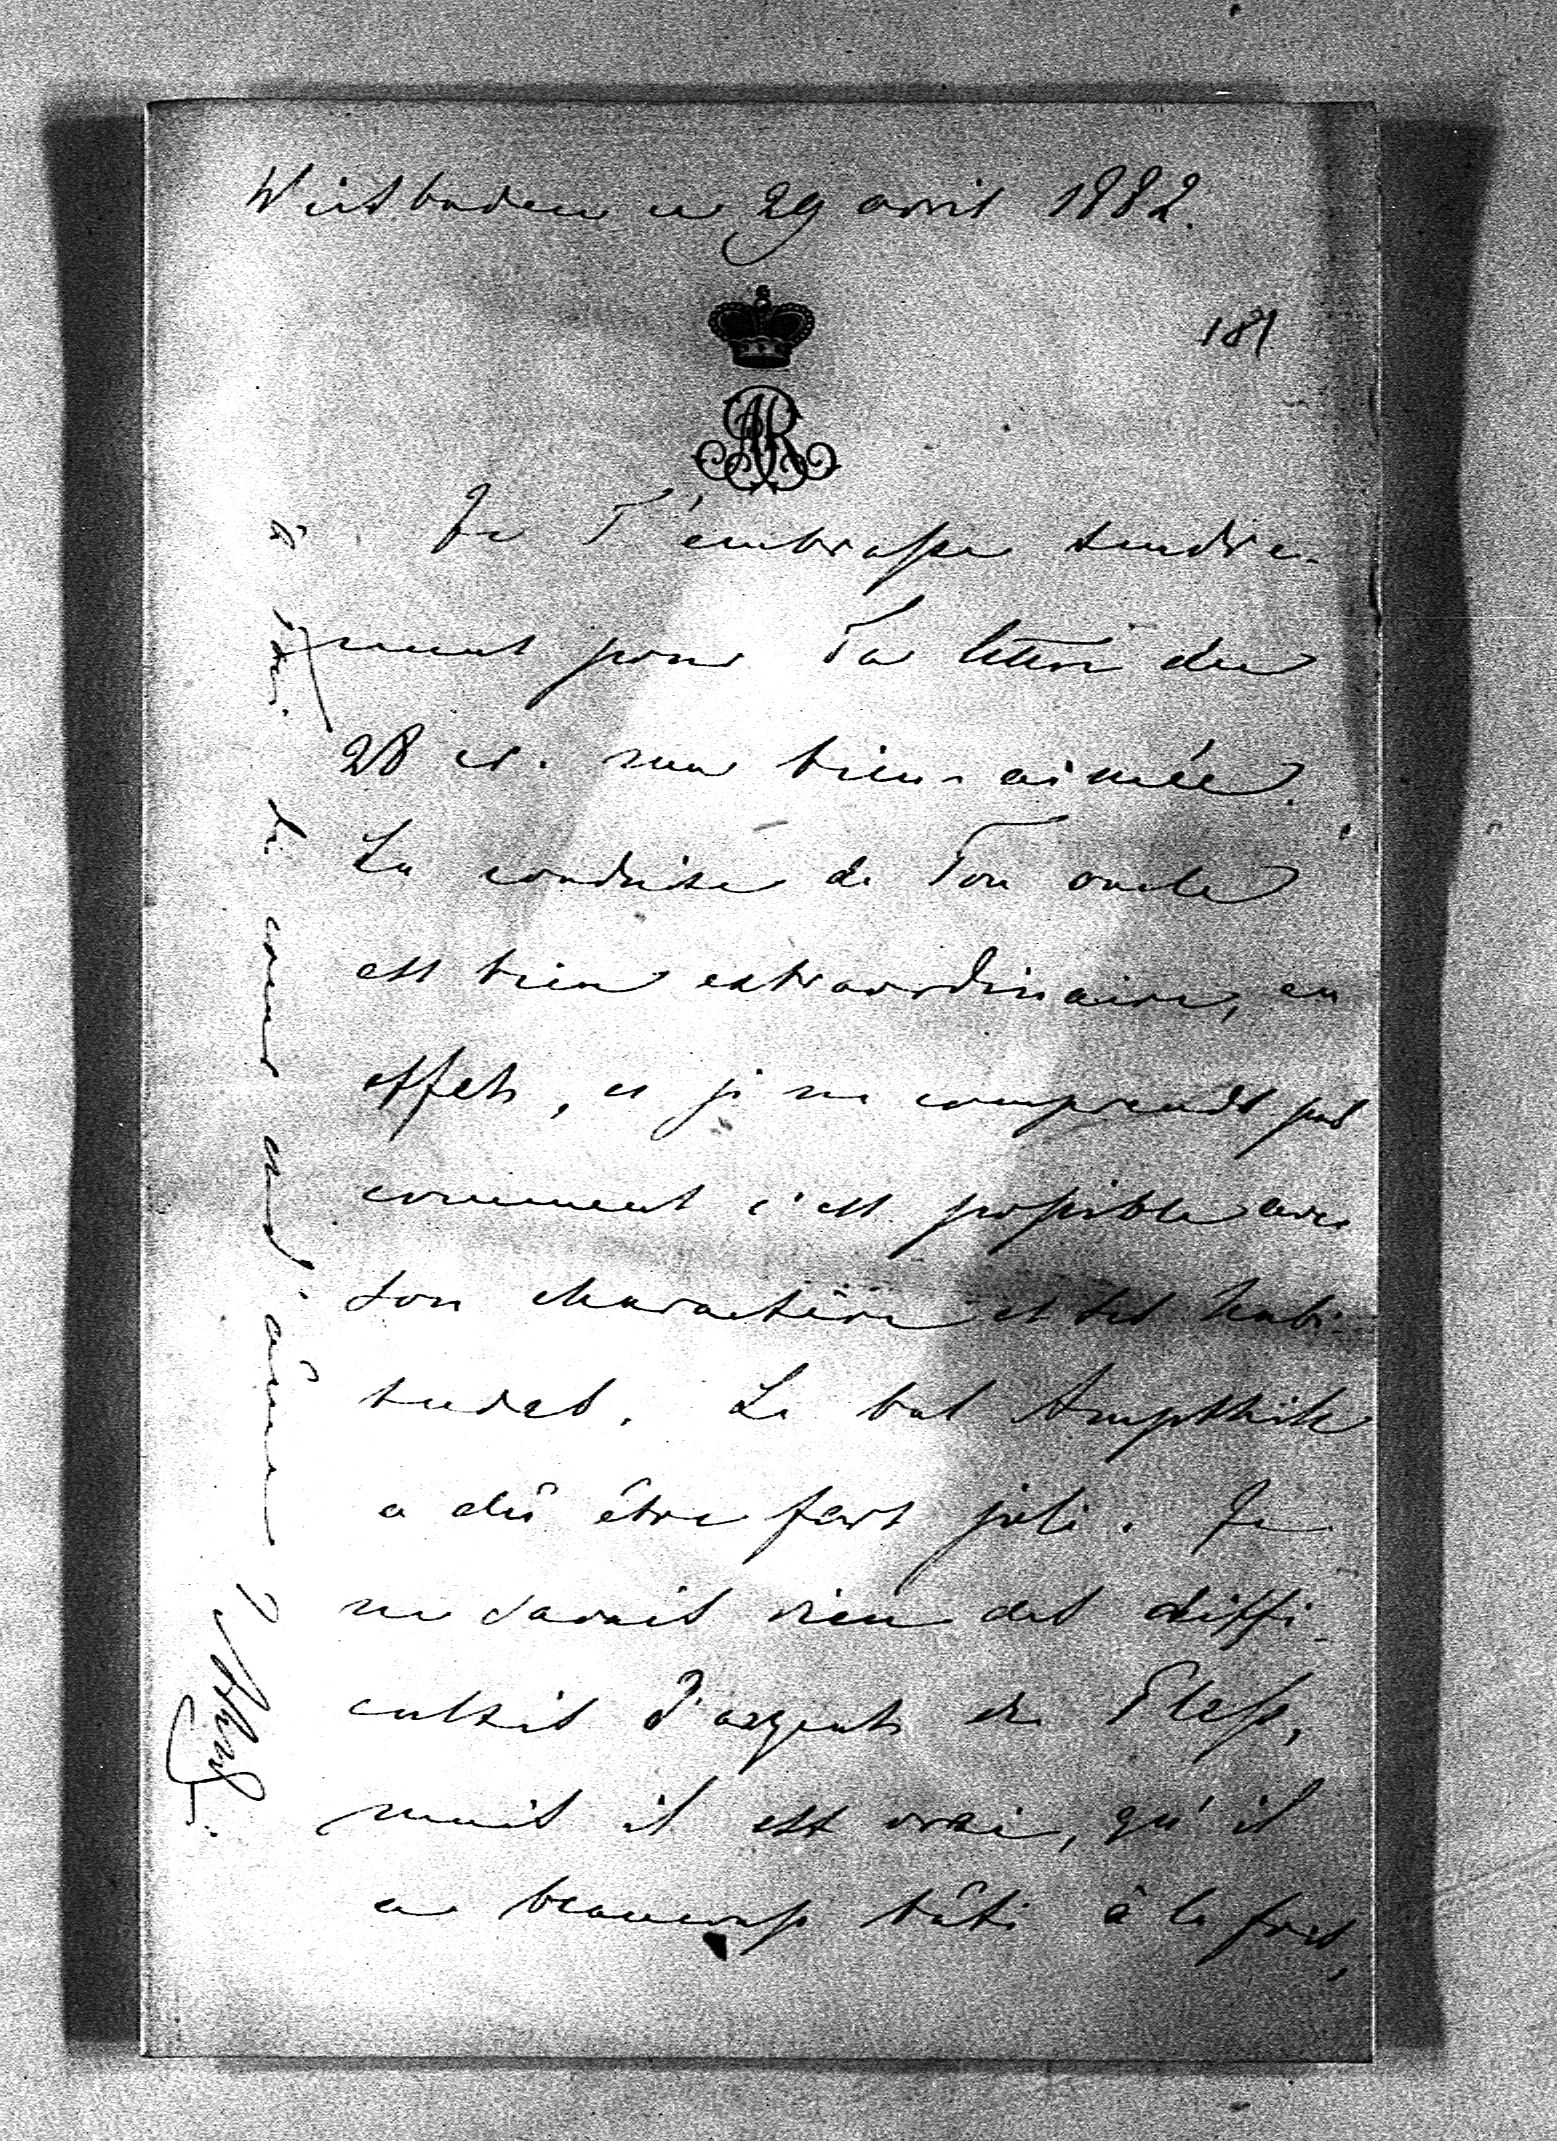 Wiesbaden ce 29 avril 1882.
181
AR
Je T'embrasse tendre-
ment pour Ta lettre du
28 et. ma bien-aimée.
La conduite de Ton oncle
est bien extraordinaire, en
effet, et je ne comprends pas
comment c'est possible avec
son charactère et ses habi-
tudes. Le bal Ampthile
a dû être fort joli. Je
ne savais rien des diffi-
cultés d'argent de Pless,
mais il est vrai, qu'il
a beaucoup bâti à la fois,
à Toi de coeur et d'âme